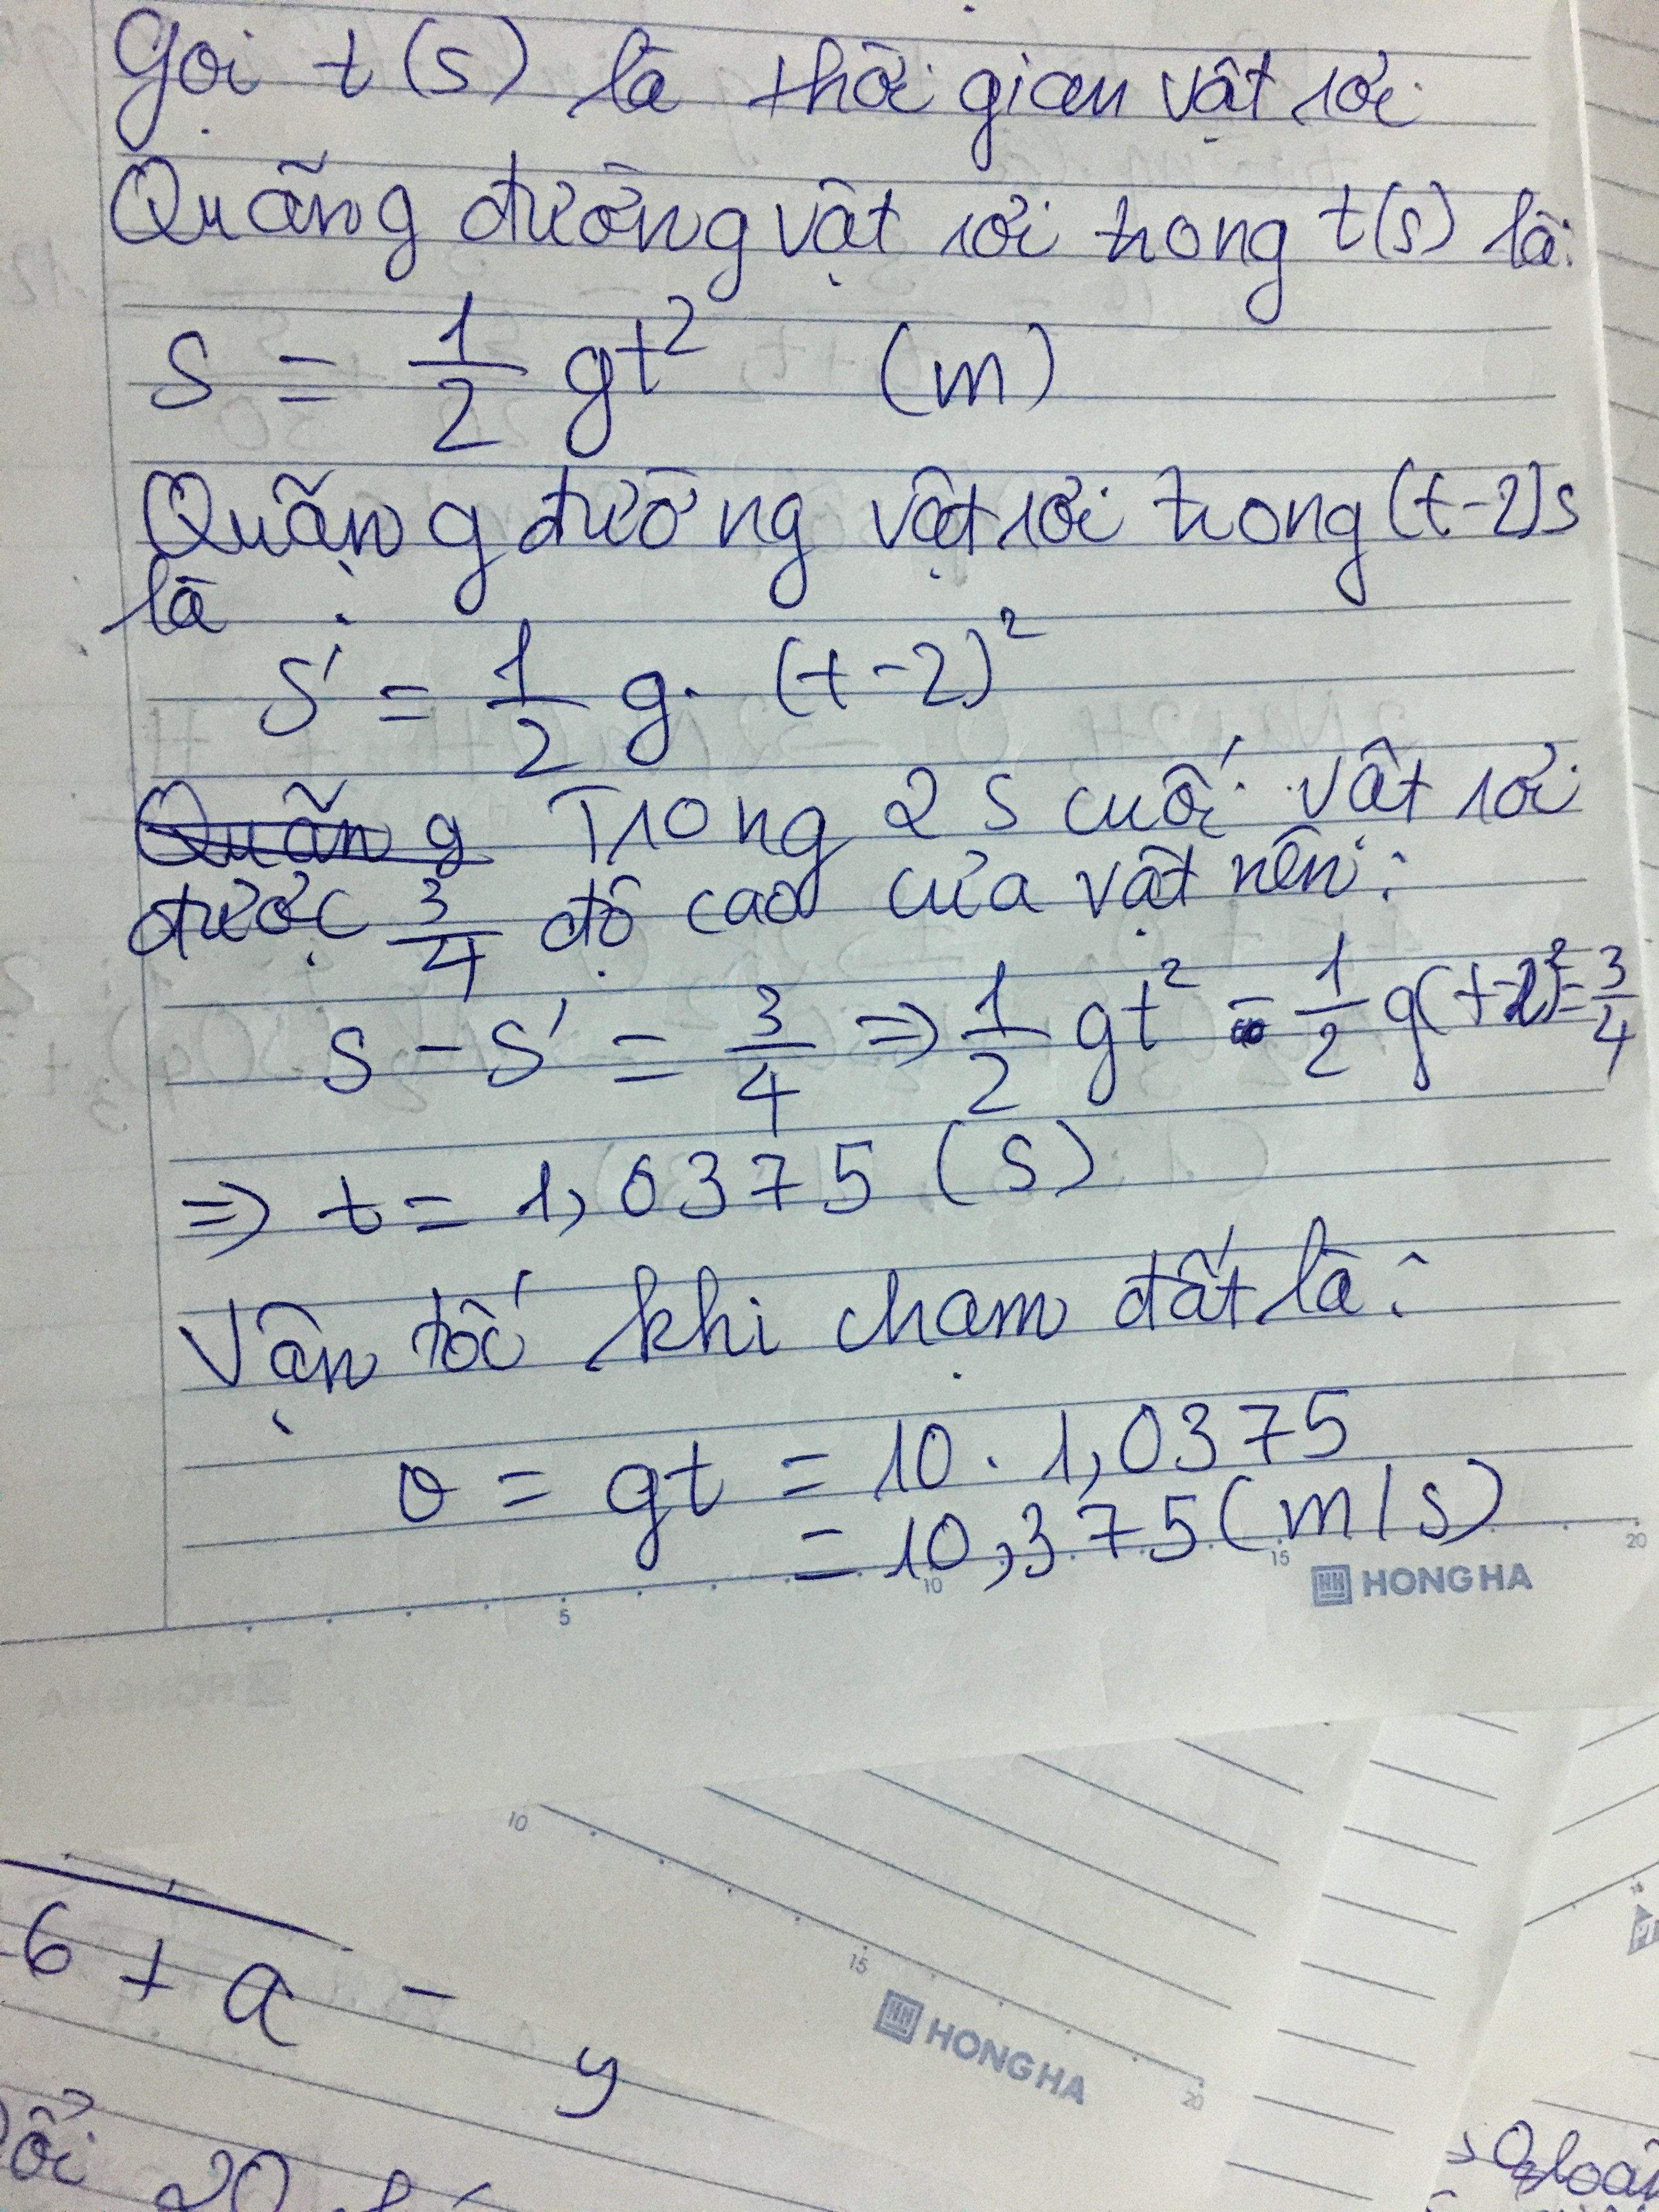 Gọi t(s) là thời gian vật rơi
Quãng đường vật rơi trong t(s) là:
S = 1/2 gt² (m)
Quãng đường vật rơi trong (t-2)s
là :
S' = 1/2 g. (t-2)²
Quãng Trong 2 s cuối vật rơi
được 3/4 độ cao của vật nên:
S - S' = 3/4 => 1/2 gt² - 1/2 g(t-2)² = 3/4
=> t = 1,0375 (s)
Vận tốc khi chạm đất là:
v = gt = 10 . 1,0375
= 10,375 (m/s)
5 10 15 20
HONG HA
10 15 20
HONG HA
6 + a -
y
20